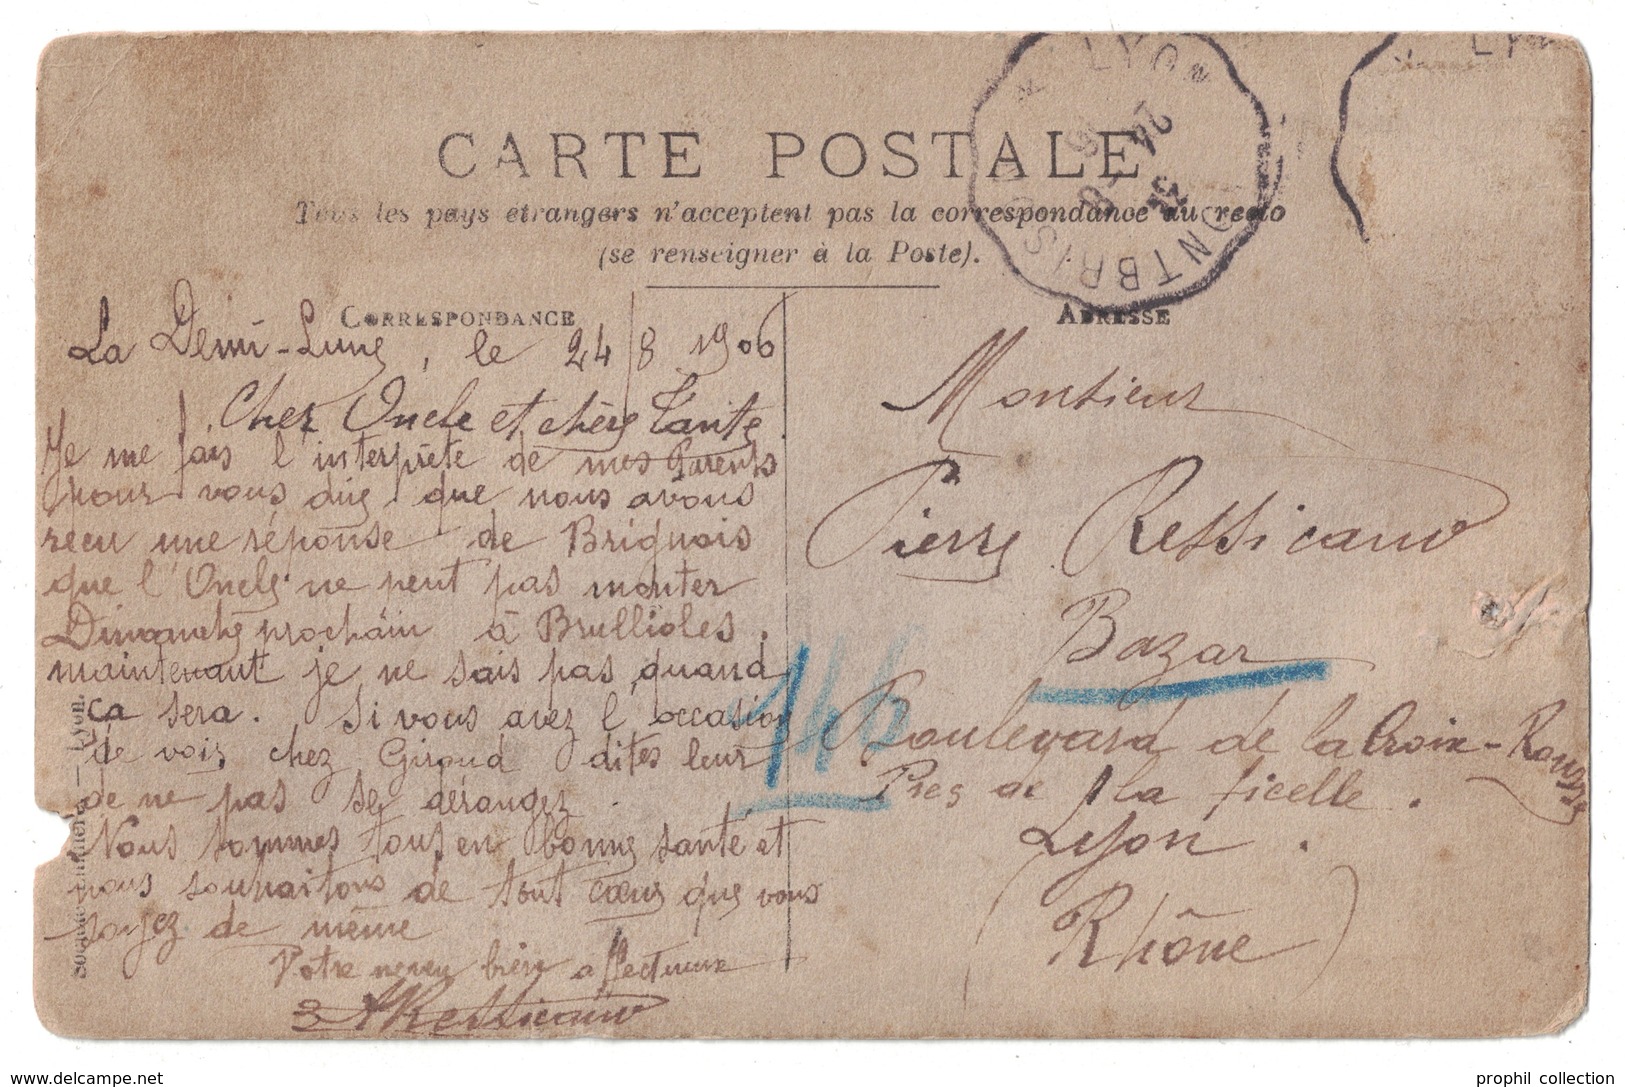 LYON
MONTBRISON
24
LYON
CARTE POSTALE
Tous les pays étrangers n'acceptent pas la correspondance au recto
(se renseigner à la Poste).
CORRESPONDANCE
ADRESSE
La Demi-Lune, le 24/8 1906
Cher Oncle et chère Tante
Je me fais l'interprète de mes Parents
pour vous dire que nous avons
reçu une réponse de Briguais
que l'Oncle ne peut pas monter
Dimanche prochain à Brullioles.
maintenant je ne sais pas quand
ça sera. Si vous avez l'occasion
de voir chez Giroud dites leur
de ne pas se déranger.
Nous sommes tous en bonne santé et
nous souhaitons de tout cœur que vous
soyez de même
Votre neveu bien affectueux
Ressicaud
Monsieur
Pierre Ressicaud
Bazar
Boulevard de la Croix-Rousse
Près de la ficelle.
Lyon.
(Rhône)
144
Lyon.
delcampe.net
prophil collection